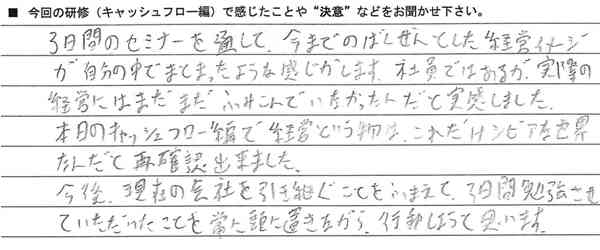 ■ 今回の研修（キャッシュフロー編）で感じたことや“決意”などをお聞かせ下さい。
3日間のセミナーを通して、今までのばくぜんとした経営イメージ
が自分の中でまとまったような感じがします。社員ではあるが、実際の
経営にはまだまだふみこんでいなかったんだと実感しました。
本日のキャッシュフロー編で経営という物は、これだけシビアな世界
なんだと再確認出来ました。
今後、現在の会社を引き継ぐことをふまえて、3日間勉強させ
ていただいたことを常に頭に置きながら、行動しようと思います。